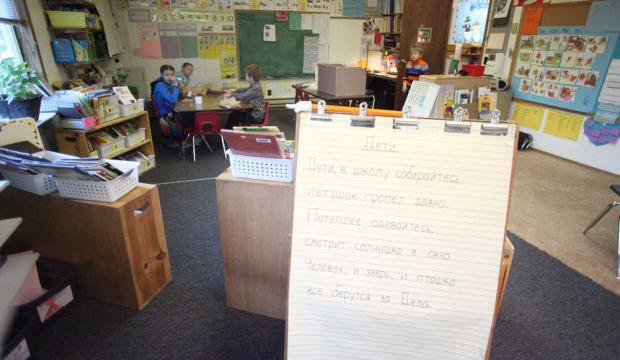 Дети.
Дети, в школу собирайтесь.
петушок пропел давно.
Потеплее одевайтесь.
смотрит солнышко в окно.
Человек, и зверь, и пташка
все берутся за Дела.